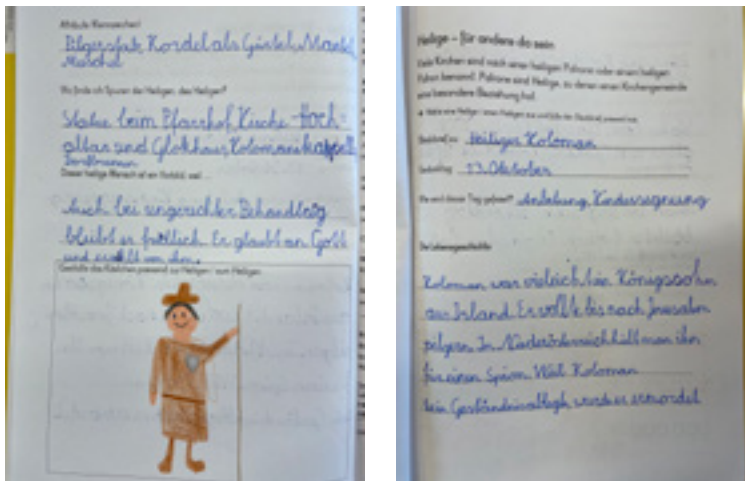 Attribute (Kennzeichen)
Pilgerstab, Kordel als Gürtel, Mantel,
Muschel
Wo finde ich Spuren der Heiligen, des Heiligen?
Statue beim Pfarrhof, Kirche-Hoch-
altar und Glokhaus, Kolomanikapelle
Dorfbrunnen
Dieser heilige Mensch ist ein Vorbild, weil ...
Auch bei ungerechter Behandlung
bleibt er fröhlich. Er glaubt an Gott
und erzählt von ihm.
Gestalte das Kästchen passend zur Heiligen / zum Heiligen.
Heilige – für andere da sein
Viele Kirchen sind nach einer heiligen Patronin oder einem heiligen
Patron benannt. Patrone sind Heilige, zu denen eine Kirchengemeinde
eine besondere Beziehung hat.
Heiliger Koloman
13. Oktober
Wie wird dieser Tag gefeiert? Anbetung, Kindersegnung
Die Lebensgeschichte
Koloman war vieleich ein Königssohn
aus Irland. Er wollte bis nach Jerusalem
pilgern. In Niederösterreich hält man ihn
für einen Spion. Weil Koloman
kein Geständnis ablegt, wurde er ermordet